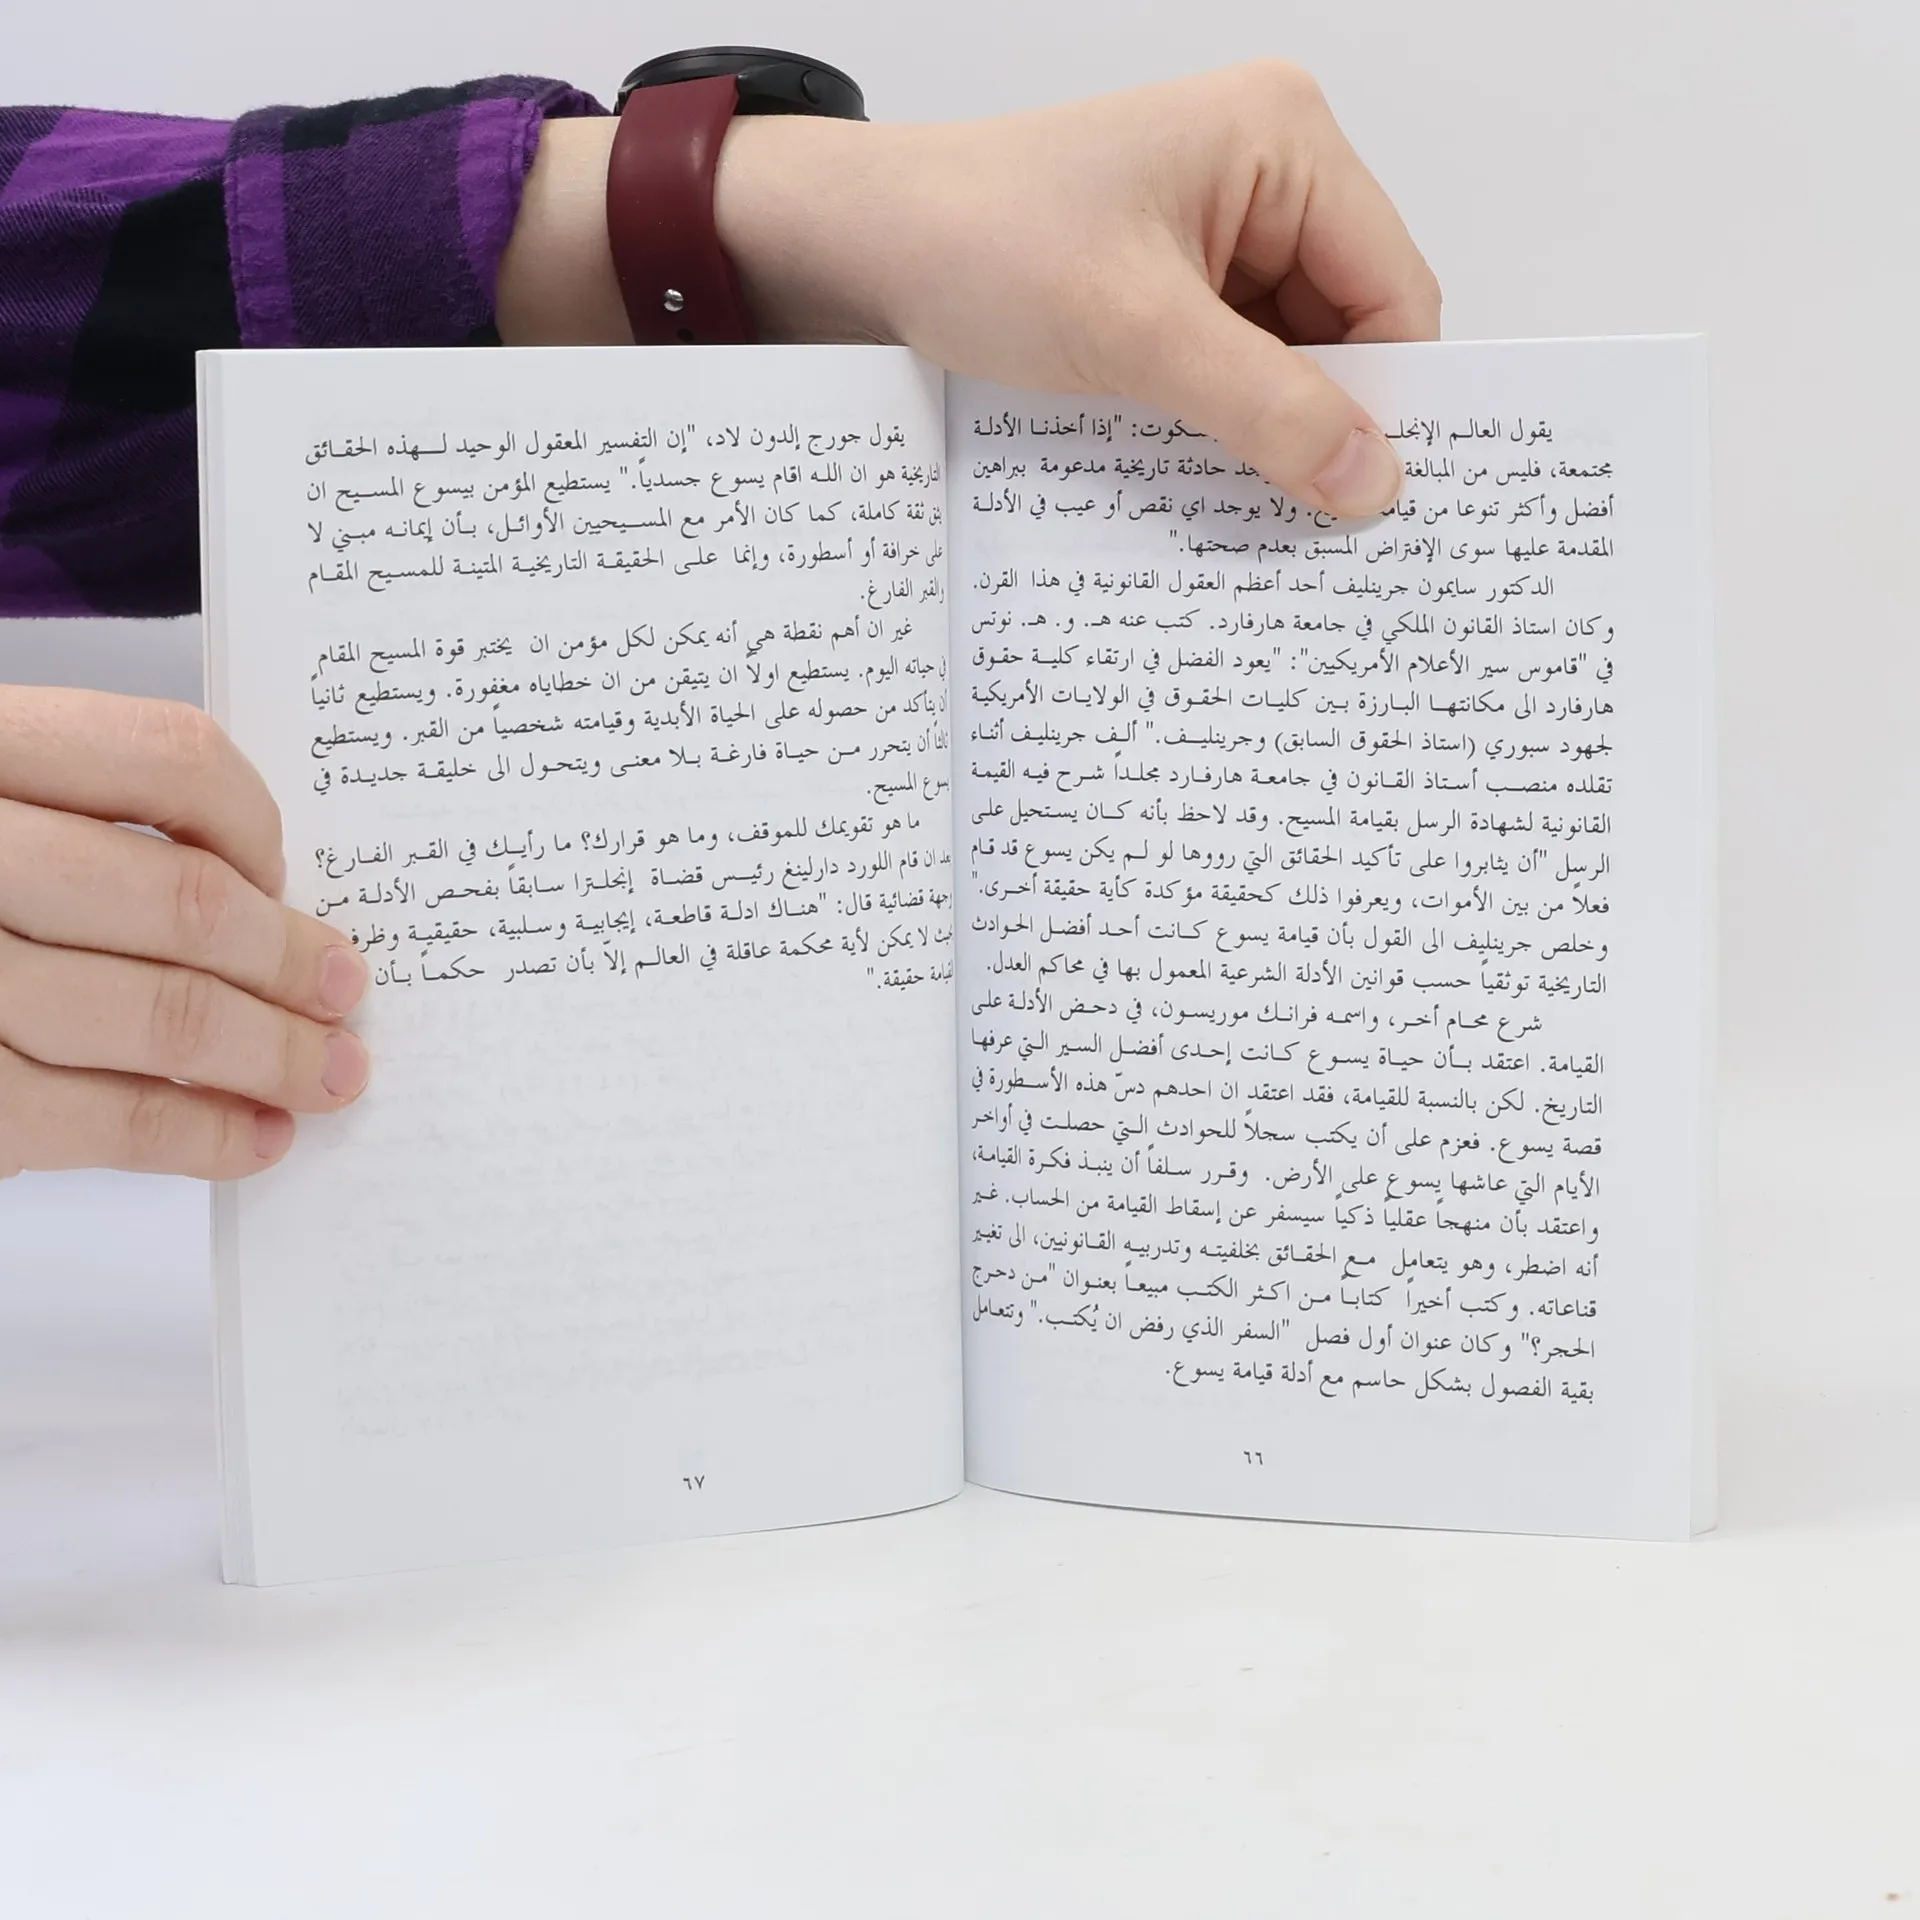 يقول العالـم الإنجلـ سكوت: "إذا أخذنـا الأدلـة
مجتمعة، فليس من المبالغة جد حادثة تاريخية مدعومة ببراهين
أفضل وأكثر تنوعا من قيامة ولا يوجد اي نقص أو عيب في الأدلـة
المقدمة عليها سوى الإفتراض المسبق بعدم صحتها."
الدكتور سايمون جرينليف أحد أعظم العقول القانونية في هذا القرن.
وكان استاذ القانون الملكي في جامعة هارفارد. كتب عنه هـ. و. هـ. نوتس
في "قاموس سير الأعلام الأمريكيين": "يعود الفضل في ارتقاء كليـة حقـوق
هارفارد الى مكانتهـا البـارزة بـين كليـات الحقـوق في الولايـات الأمريكيـة
لجهود سبوري (استاذ الحقوق السابق) وجرينليـف." ألـف جرينليـف أثنـاء
تقلده منصـب أسـتاذ القـانون في جامعـة هارفـارد مجلـداً شـرح فيـه القيمـة
القانونية لشهادة الرسل بقيامة المسيح. وقد لاحظ بأنه كـان يسـتحيل علـى
الرسل "أن يثابروا على تأكيد الحقائق التي رووها لو لـم يكن يسوع قد قـام
فعلاً من بين الأموات، ويعرفوا ذلك كحقيقة مؤكدة كأية حقيقة أخـرى."
وخلص جرينليف الى القول بأن قيامة يسوع كـانت أحـد أفضـل الحـوادث
التاريخية توثقياً حسب قوانين الأدلة الشرعية المعمول بها في محاكم العدل.
شرع محـام أخـر، واسمـه فرانـك موريسـون، في دحـض الأدلـة علـى
القيامة. اعتقد بـأن حيـاة يسـوع كـانت إحـدى أفضـل السـير الـتي عرفهـا
التاريخ. لكن بالنسبة للقيامة، فقد اعتقد ان احدهم دسّ هذه الأسـطورة في
قصة يسوع. فعزم على أن يكتب سجلاً للحوادث الـتي حصلـت في أواخـر
الأيام التي عاشها يسوع على الأرض. وقـرر سـلفاً أن ينبـذ فكـرة القيامـة،
واعتقد بأن منهجاً عقلياً ذكياً سيسفر عن إسقاط القيامة من الحساب. غـير
أنه اضطر، وهو يتعامل مـع الحقـائق بخلفيتـه وتدربيـه القـانونيين، الى تغيـير
قناعاته. وكتب أخيراً كتابـاً مـن اكـثر الكتـب مبيعـاً بعنـوان "مـن دحـرج
الحجر؟" وكان عنوان أول فصل "السفر الذي رفض ان يُكتـب." وتتعـامل
بقية الفصول بشكل حاسم مع أدلة قيامة يسوع.
٦٦
يقول جورج إلدون لاد، "إن التفسير المعقول الوحيد لـهذه الحقـائق
التاريخية هو ان اللـه اقام يسوع جسدياً." يستطيع المؤمن بيسوع المسـيح ان
يثق ثقة كاملة، كما كان الأمر مع المسـيحيين الأوائـل، بـأن إيمانـه مبـني لا
على خرافة أو أسطورة، وإنما علـى الحقيقـة التاريخيـة المتينـة للمسـيح المقـام
والقبر الفارغ.
غير ان أهم نقطة هي أنه يمكن لكل مؤمن ان يختبر قوة المسيح المقام
في حياته اليوم. يستطيع اولاً ان يتيقن من ان خطاياه مغفورة. ويستطيع ثانياً
أن يتأكد من حصوله على الحياة الأبدية وقيامته شخصياً من القبر. ويستطيع
ثالثاً أن يتحرر مـن حيـاة فارغـة بـلا معنـى ويتحـول الى خليقـة جديـدة في
يسوع المسيح.
ما هو تقويمك للموقف، وما هو قرارك؟ ما رأيـك في القـبر الفـارغ؟
بعد ان قام اللورد دارلينغ رئيـس قضـاة إنجلـترا سـابقاً بفحـص الأدلـة مـن
وجهة قضائية قال: "هنـاك ادلـة قاطعـة، إيجابيـة وسـلبية، حقيقيـة وظرفـ
بحيث لا يمكن لأية محكمة عاقلة في العالـم إلاّ بأن تصدر حكمـاً بـأن
القيامة حقيقة."
٦٧